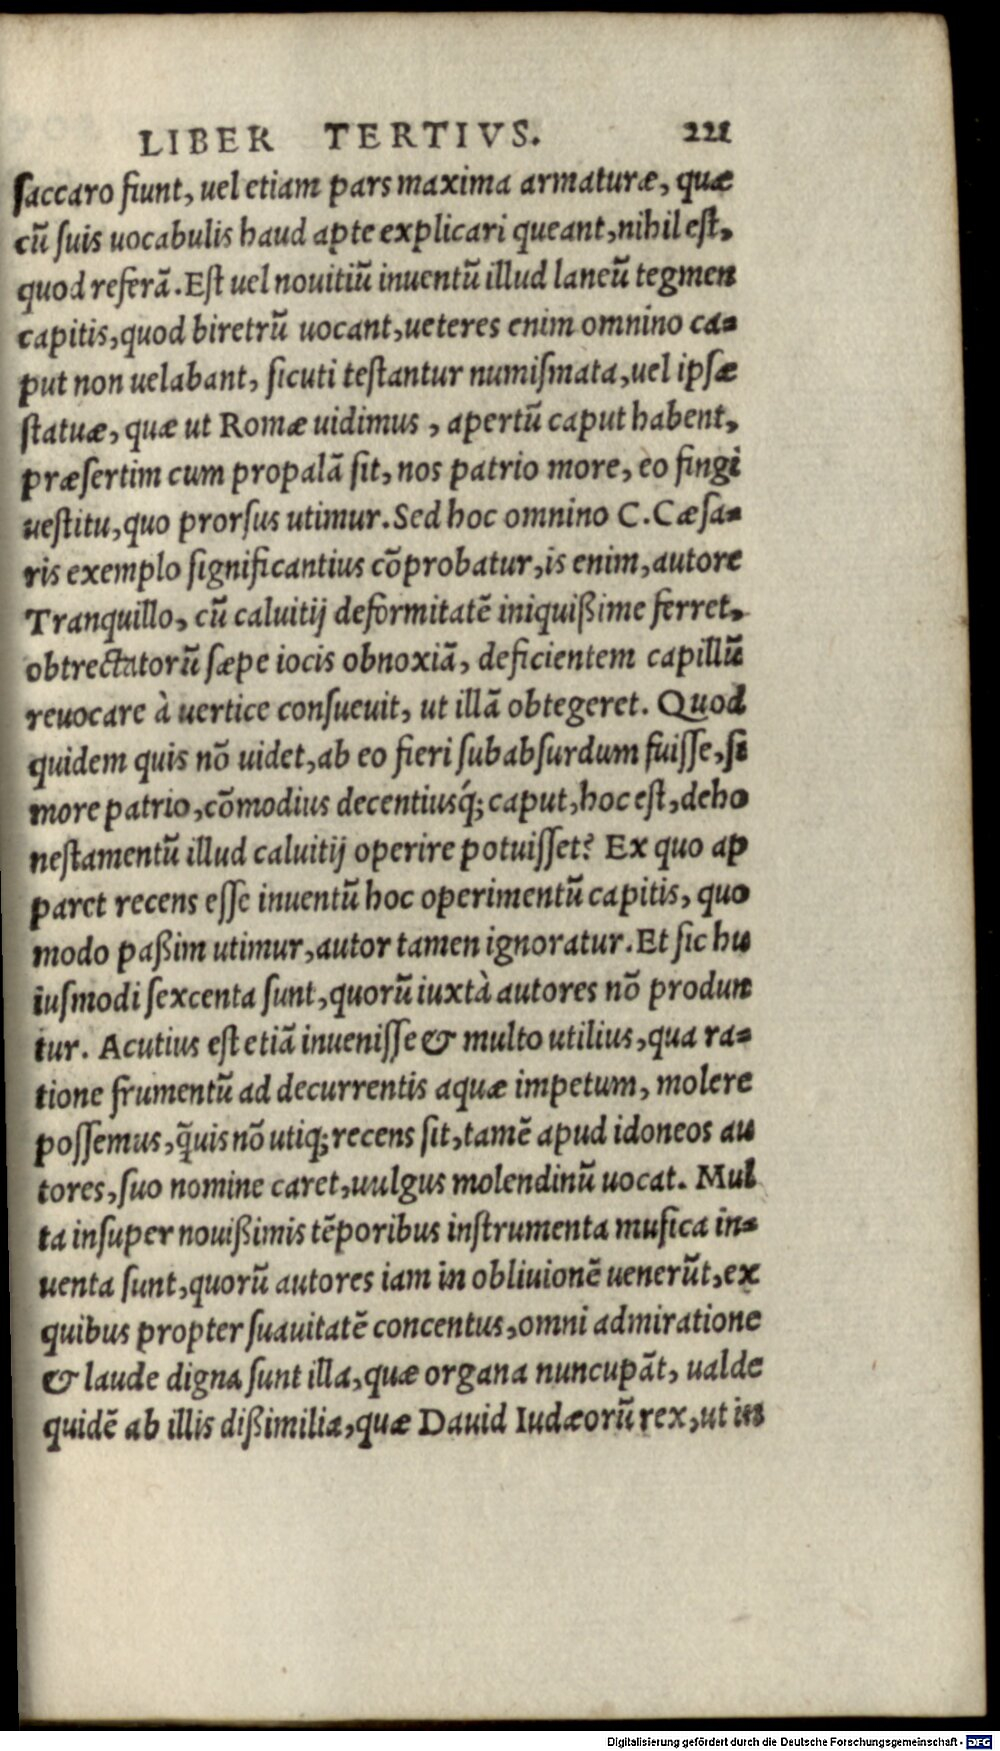 LIBER TERTIVS. 221
saccaro fiunt, uel etiam pars maxima armaturæ, quæ
cũ suis uocabulis haud apte explicari queant, nihil est,
quod referã. Est uel nouitiũ inuentũ illud laneũ tegmen
capitis, quod biretrũ uocant, ueteres enim omnino ca=
put non uelabant, sicuti testantur numismata, uel ipsæ
statuæ, quæ ut Romæ uidimus, apertũ caput habent,
præsertim cum propalã sit, nos patrio more, eo fingi
uestitu, quo prorsus utimur. Sed hoc omnino C. Cæsa=
ris exemplo significantius cõprobatur, is enim, autore
Tranquillo, cũ caluitij deformitatẽ iniquißime ferret,
obtrectatorũ sæpe iocis obnoxiã, deficientem capillũ
reuocare à uertice consueuit, ut illã obtegeret. Quod
quidem quis nõ uidet, ab eo fieri subabsurdum fuisse, si
more patrio, cõmodius decentiusq́; caput, hoc est, deho
nestamentũ illud caluitij operire potuisset? Ex quo ap
paret recens esse inuentũ hoc operimentũ capitis, quo
modo paßim utimur, autor tamen ignoratur. Et sic hu
iusmodi sexcenta sunt, quorũ iuxtà autores nõ produn
tur. Acutius est etiã inuenisse & multo utilius, qua ra=
tione frumentũ ad decurrentis aquæ impetum, molere
possemus, q̃uis nõ utiq; recens sit, tamẽ apud idoneos au
tores, suo nomine caret, uulgus molendinũ uocat. Mul
ta insuper nouißimis tẽporibus instrumenta musica in=
uenta sunt, quorũ autores iam in obliuionẽ uenerũt, ex
quibus propter suauitatẽ concentus, omni admiratione
& laude digna sunt illa, quæ organa nuncupãt, ualde
quidẽ ab illis dißimilia, quæ Dauid Iudæorũ rex, ut in
Digitalisierung gefördert durch die Deutsche Forschungsgemeinschaft - DFG